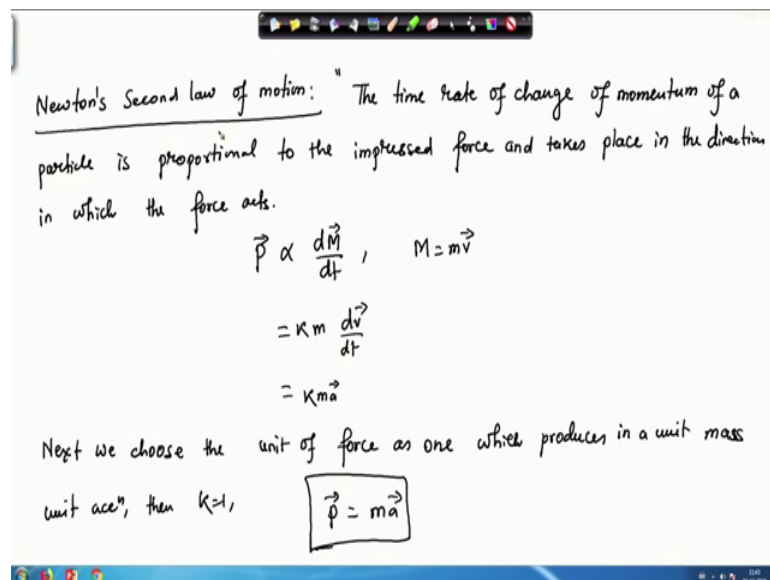 Newton's Second law of motion: "The time rate of change of momentum of a
particle is proportional to the impressed force and takes place in the direction
in which the force acts.
P⃗ ∝ dM⃗/dt , M = mv⃗
= K m dv⃗/dt
= K ma⃗
Next we choose the unit of force as one which produces in a unit mass
unit aceⁿ, then K=1, P⃗ = ma⃗